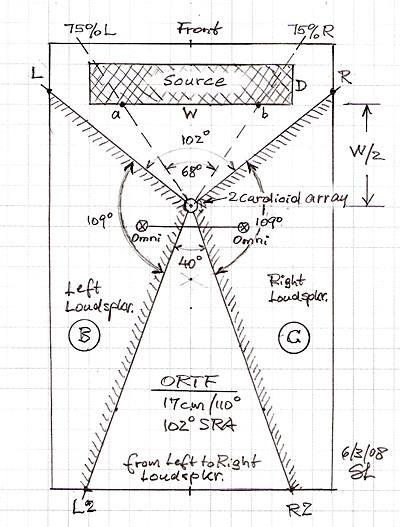 75% L Front 75% R
L R
Source D
a W b
102°
68° W/2
2 Cardioid array
109° 109°
Omni Omni
40°
Left
Loudspkr.
Right
Loudspkr.
B C
ORTF
17cm/110°
102° SRA
6/3/08
SL
from Left to Right
Loudspkr.
L2 R2